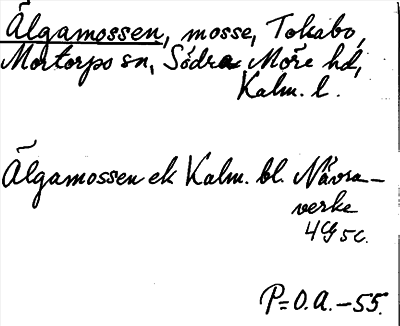 Älgamossen, mosse, Tokabo,
Mortorps sn, Södra Möre hd,
Kalm. l.
Älgamossen ek Kalm. bl. Nävra-
verke
4G5c.
P=O.A.-55.